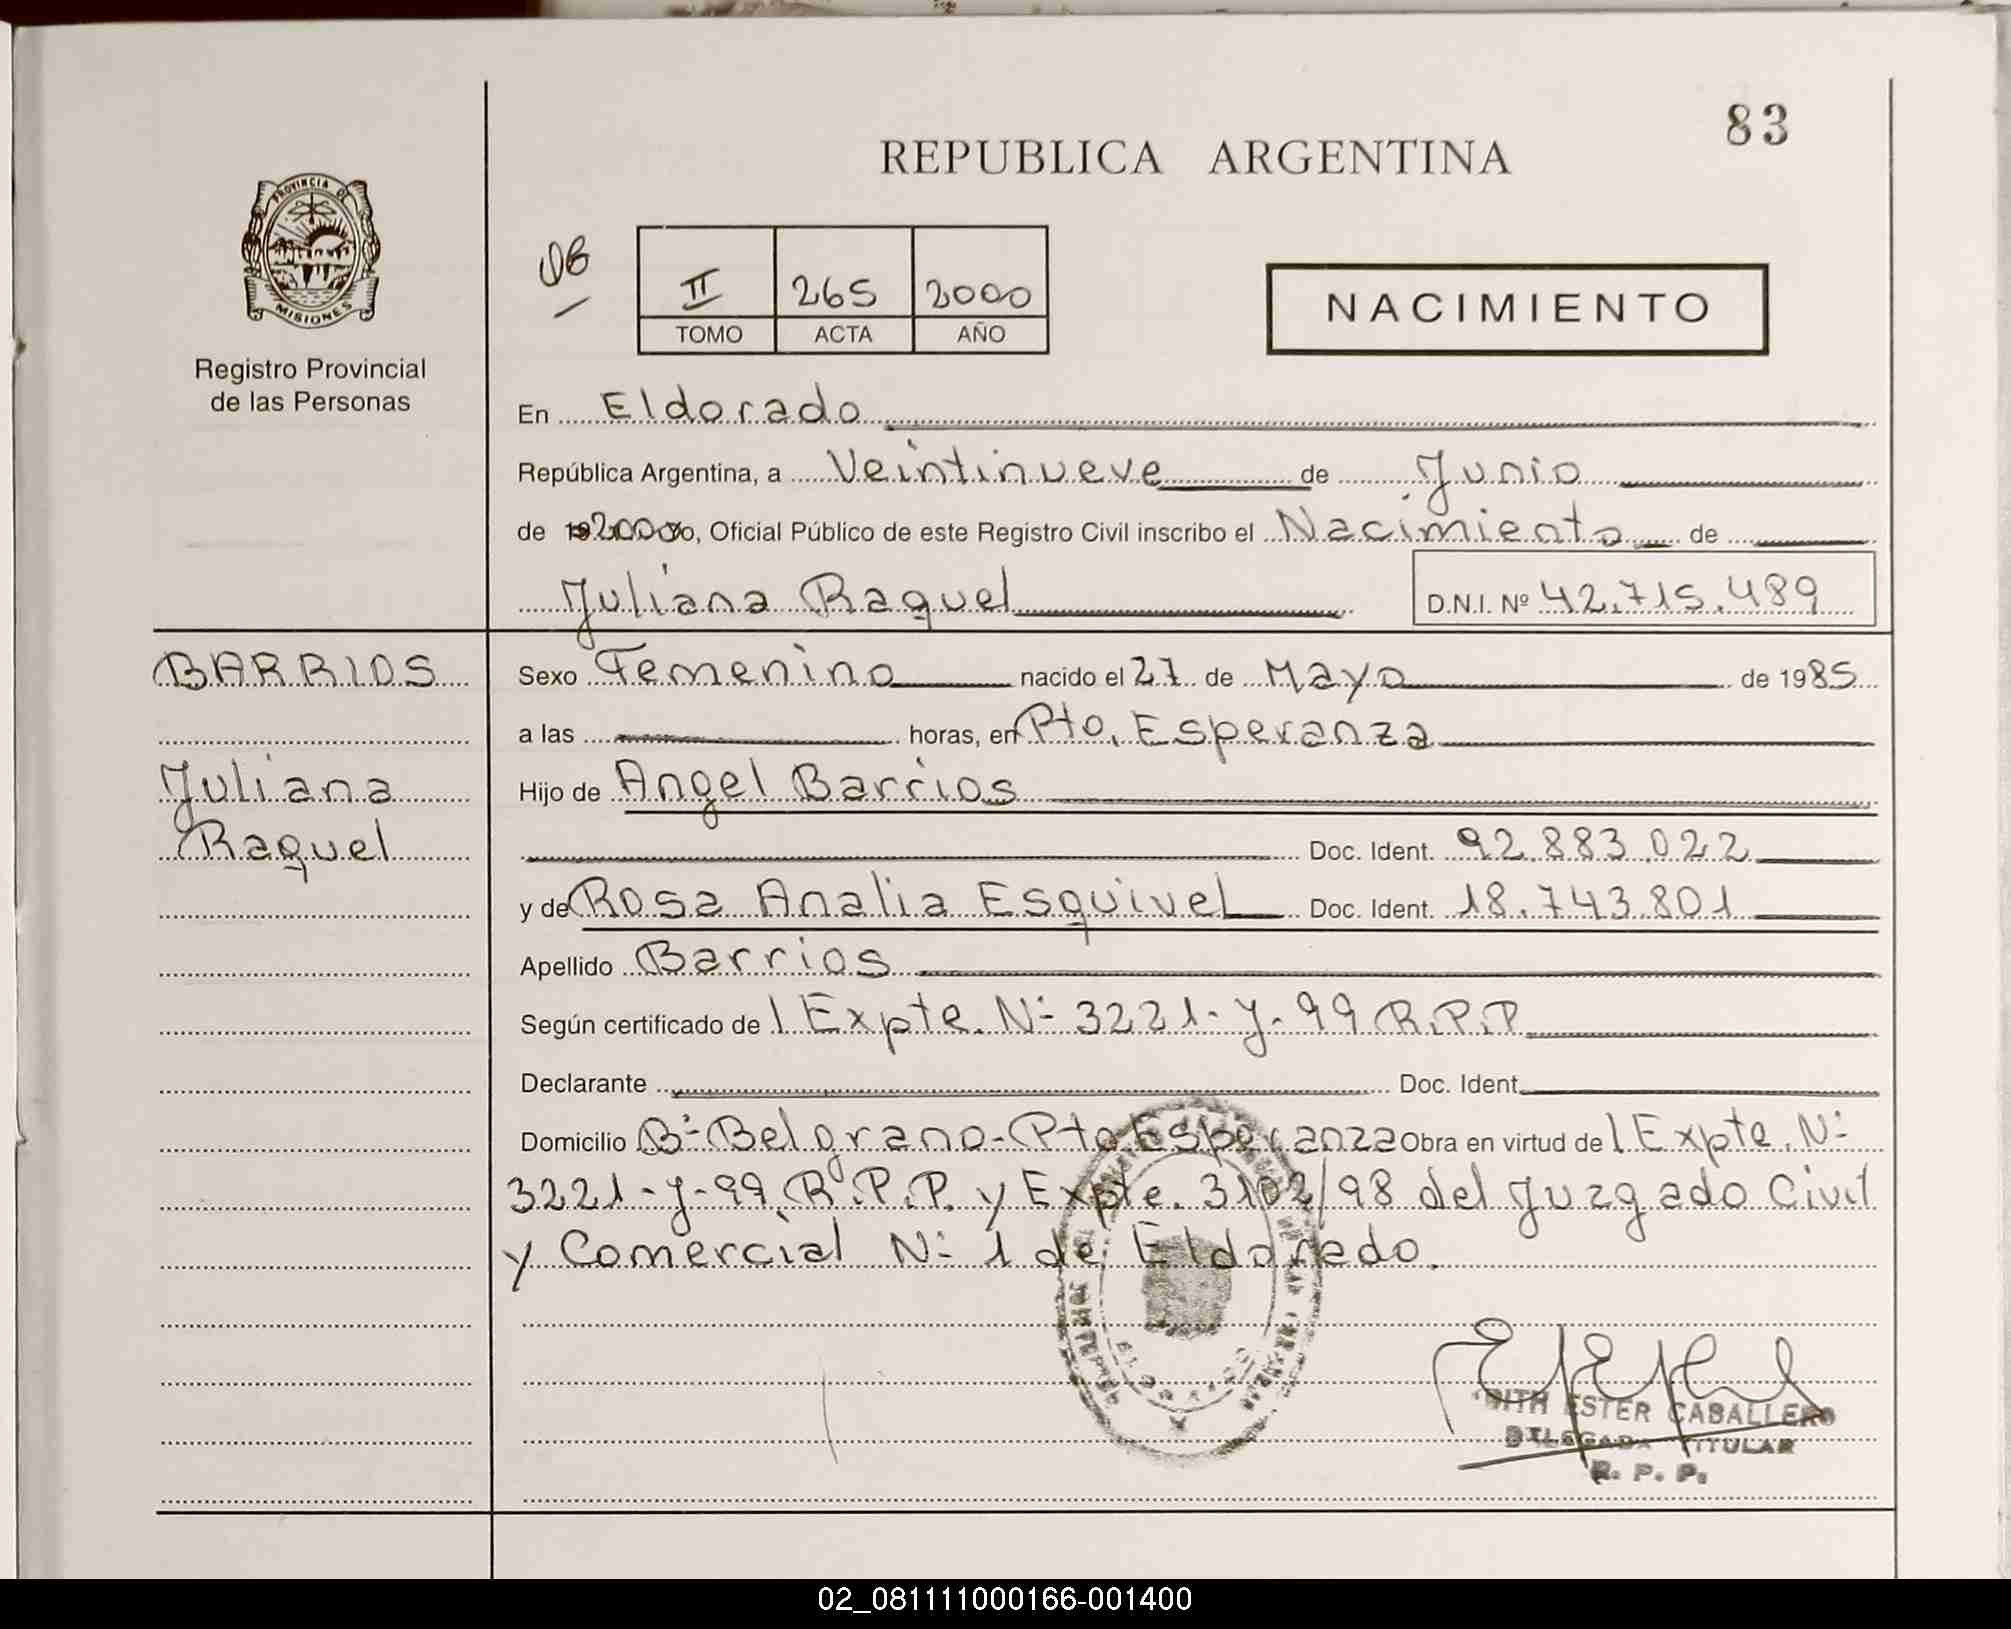 83
REPUBLICA ARGENTINA
PROVINCIA DE
MISIONES
Registro Provincial
de las Personas
II 265 2000
TOMO ACTA AÑO
NACIMIENTO
En Eldorado
República Argentina, a Veintinueve de Junio
de 2000 yo, Oficial Público de este Registro Civil inscribo el Nacimiento de
Juliana Raquel D.N.I. Nº 42.715.489
BARRIOS
Juliana
Raquel
Sexo Femenino nacido el 27 de Mayo de 1985
a las horas, en Pto. Esperanza
Hijo de Angel Barrios
Doc. Ident. 92.883.022
y de Rosa Analia Esquivel Doc. Ident. 18.743.801
Apellido Barrios
Según certificado de l Expte. Nº 3221-J-99 R.P.P
Declarante Doc. Ident.
Domicilio Bº Belgrano-Pto Esperanza Obra en virtud de l Expte. Nº
3221-J-99 R.P.P. y Expte. 3102/98 del Juzgado Civil
y Comercial Nº 1 de Eldorado.
ESTER CABALLERO
DELEGADA TITULAR
R. P. P.
02_081111000166-001400